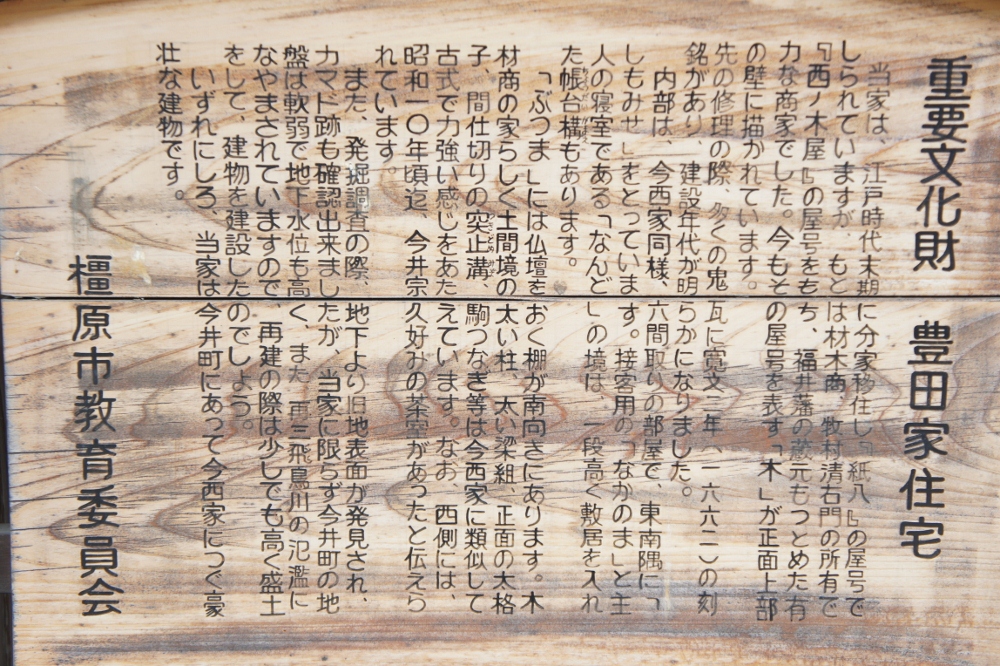 重要文化財 豊田家住宅
当家は、江戸時代末期に分家移住し『紙八』の屋号で
しられていますが、もとは材木商、牧村清右門の所有で
『西ノ木屋』の屋号をもち、福井藩の蔵元もつとめた有
力な商家でした。今もその屋号を表す「木」が正面上部
の壁に描かれています。
先の修理の際、多くの鬼瓦に寛文二年（一六六二）の刻
銘があり、建設年代が明らかになりました。
内部は、今西家同様、六間取りの部屋で、東南隅に「
しもみせ」をとっています。接客用の「なかのま」と主
人の寝室である「なんど」の境は、一段高く敷居を入れ
た帳台構もあります。
「ぶつま」には仏壇をおく棚が南向きにあります。木
材商の家らしく土間境の太い柱、太い梁組、正面の太格
子、間仕切りの突止溝、駒つなぎ等は今西家に類似して
古式で力強い感じをあたえています。なお、西側には、
昭和一〇年頃迄、今井宗久好みの茶室があったと伝えら
れています。
また、発掘調査の際、地下より旧地表面が発見され、
カマド跡も確認出来ましたが、当家に限らず今井町の地
盤は軟弱で地下水位も高く、また、再三飛鳥川の氾濫に
なやまされていますので、再建の際は少しでも高く盛土
をして、建物を建設したのでしょう。
いずれにしろ、当家は今井町にあって今西家につぐ豪
壮な建物です。
橿原市教育委員会